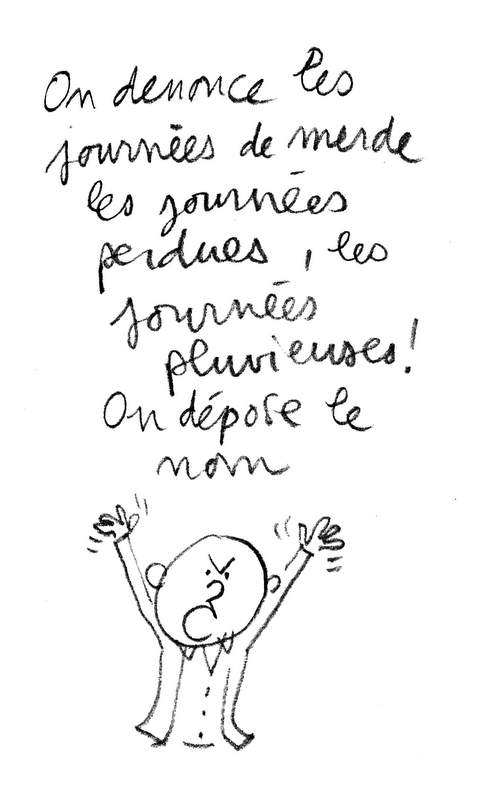 On denonce les
journées de merde
les journées
perdues, les
journées
pluvieuses!
On dépose le
nom